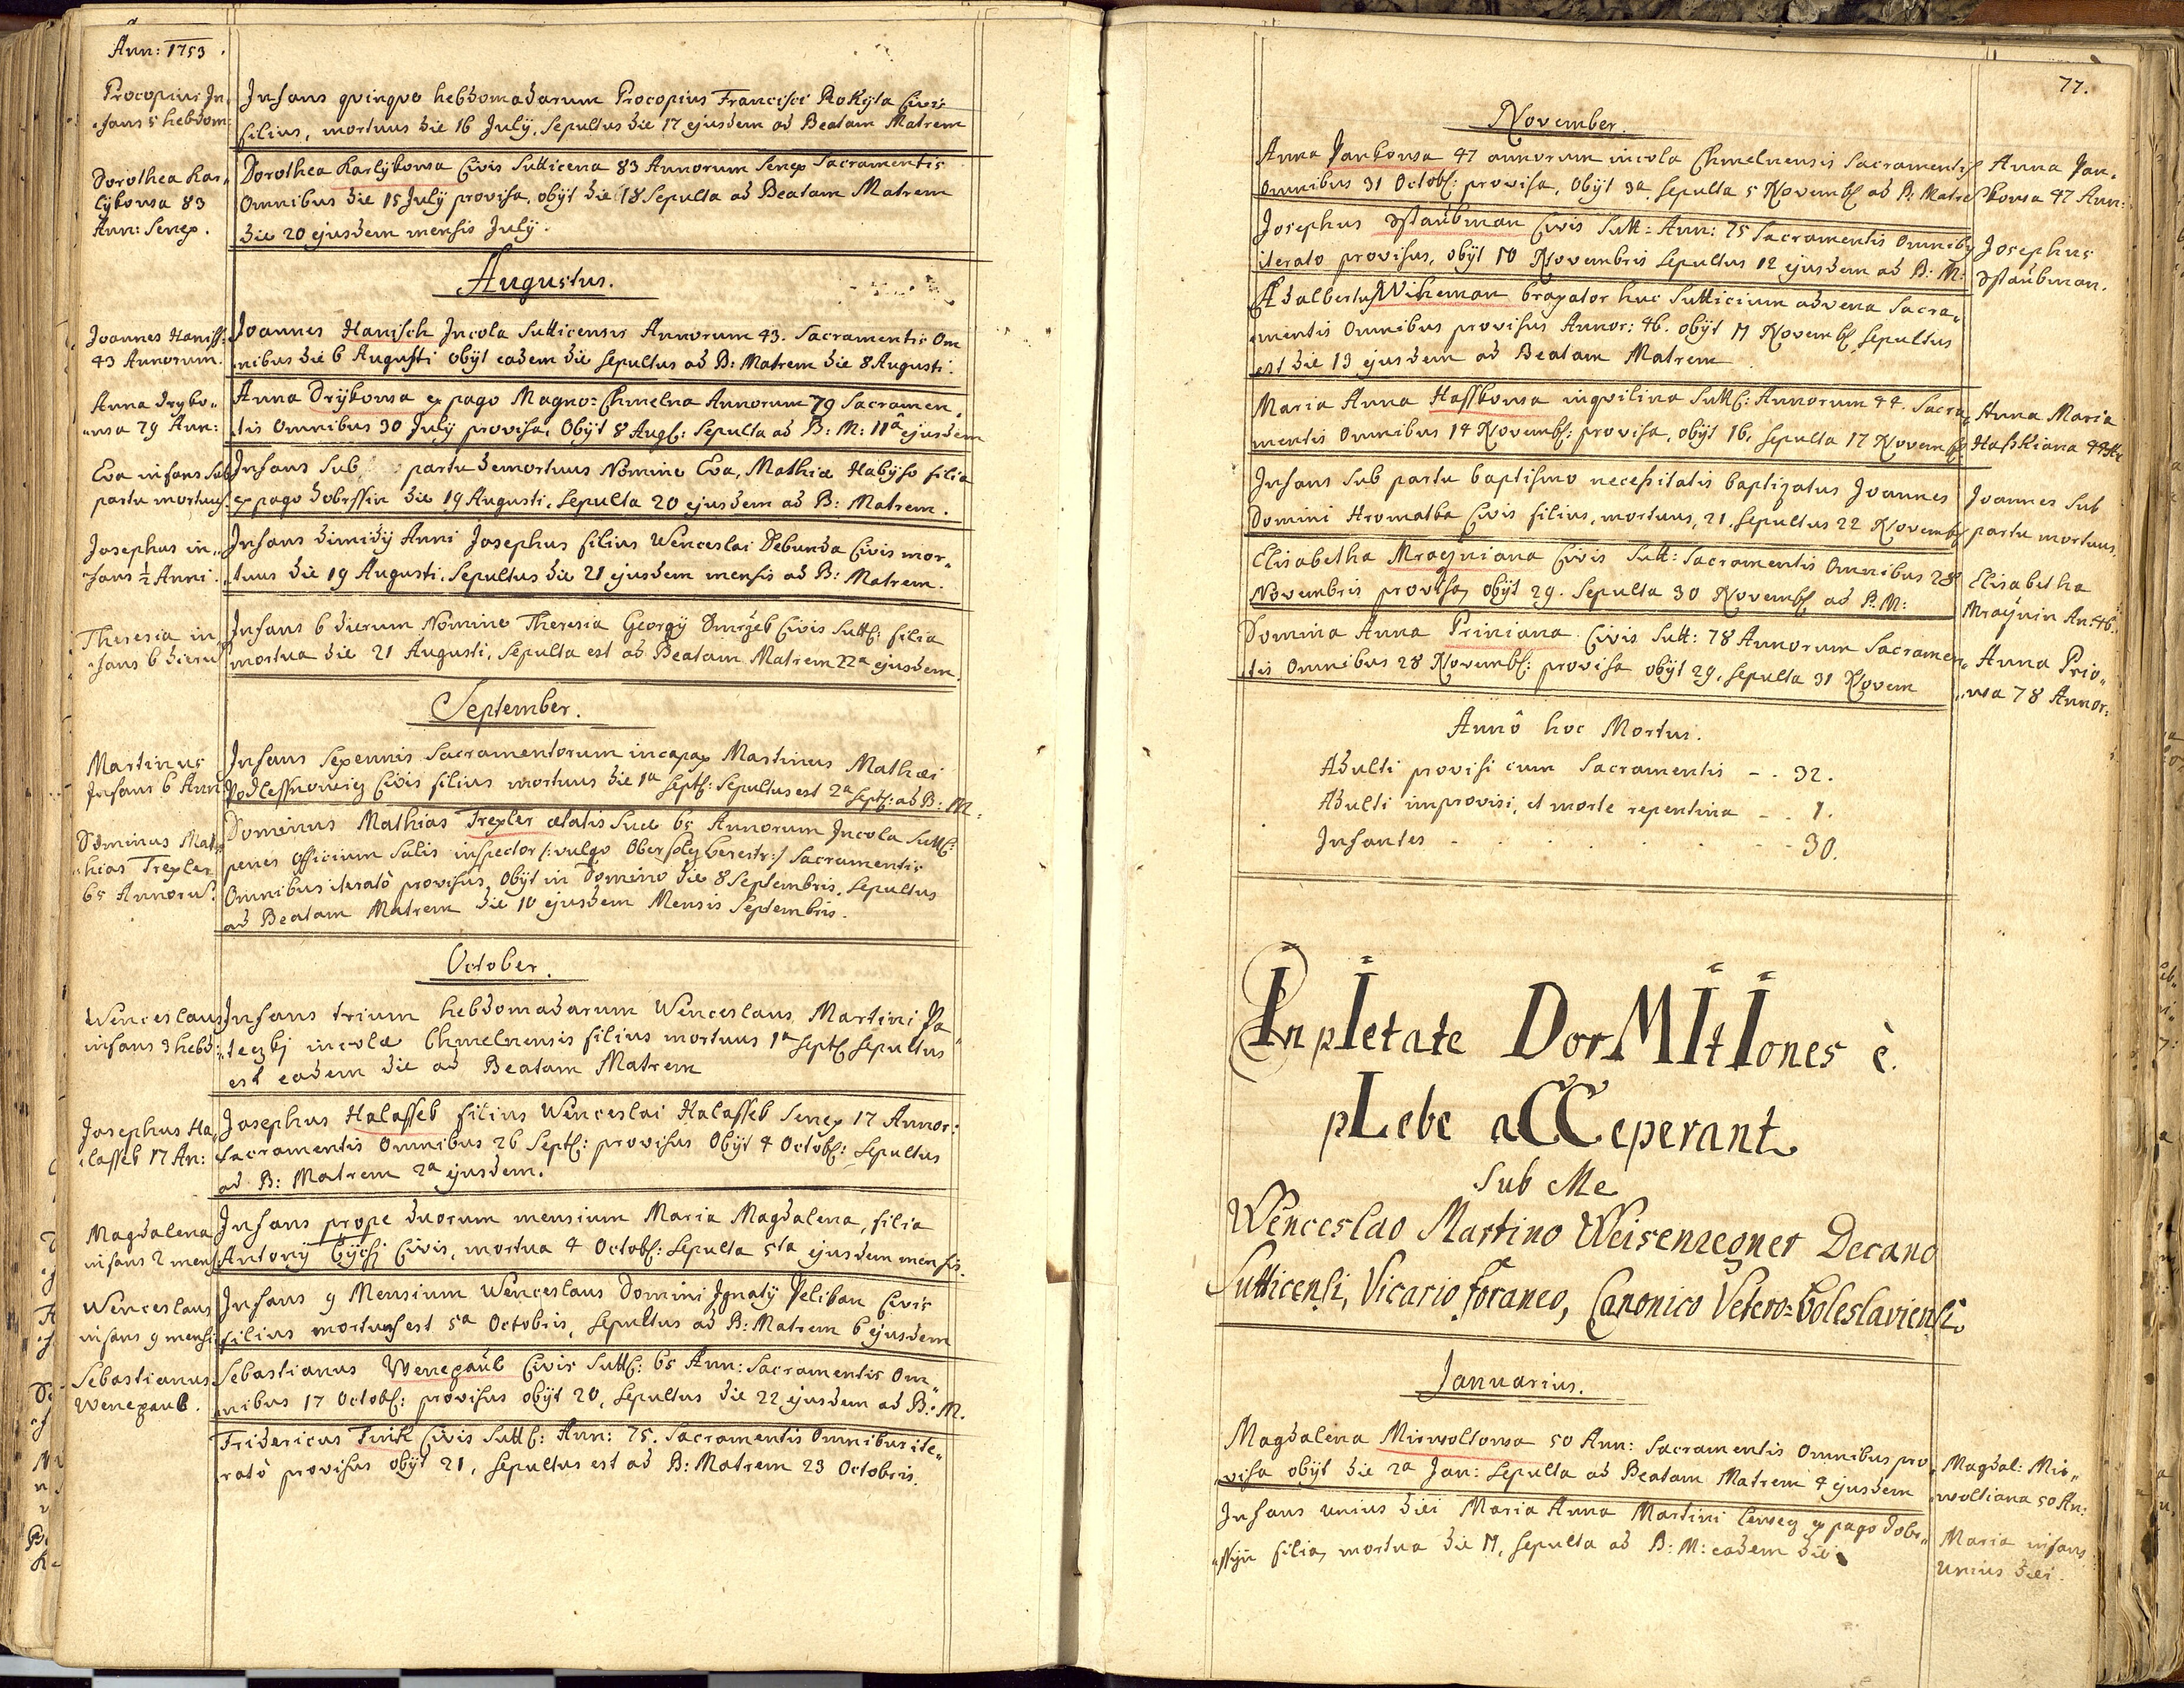 Ann: 1753.
Procopius In,
fans 5 hebdom:
Infans quinque hebdomadarum Procopius Francisci Rokyta Civis
filius, mortuus die 16 July, Sepultus die 17 ejusdem ad Beatam Matrem
Dorothea Kar,,
lykowa 83
Ann: Senex.
Dorothea Karlykowa Civis Sutticena 83 Annorum Senex Sacramentis
Omnibus die 15 July provisa, obÿt die 18 Sepulta ad Beatam Matrem
die 20 ejusdem mensis July.
Augustus.
Joannes Haniss:
43 Annorum.
Joannes Hanisch Incola Sutticensis Annorum 43. Sacramentis Om
nibus die 6 Augusti obÿt eadem die sepultus ad B: Matrem die 8 Augusti.
Anna Dryko,,
,,wa 79 Ann:
Anna Drÿkowa ex pago Magno=Chmelna Annorum 79 Sacramen,
tis Omnibus 30 July provisa, Obÿt 8 Aug: Sepulta ad B: M: 11a ejusdem
Eva infans sub
partu mortuus
Infans Sub partu demortuus Nomine Eva, Mathiæ Habÿso filia
ex pago dobrssin die 19 Augusti, Sepulta 20 ejusdem ad B: Matrem.
Josephus in,,
fans ½ Anni.
Infans dimidÿ Anni Josephus filius Wenceslai Debunda Civis mor,,
tuus die 19 Augusti, Sepultus die 21 ejusdem mensis ad B: Matrem.
Theresia in
fans 6 dieru
Infans 6 dierum Nomine Theresia Georgÿ Smrżek Civis Sutt: filia
mortua die 21 Augusti, Sepulta est ad Beatam Matrem 22a ejusdem.
September.
Martinus
Infans 6 Ann
Infans Sexennis Sacramentorum incapax Martinus Mathæi
Podlessnoweig Civis filius mortuus die 1a Sept: Sepultus est 2a Sept: ad B: M:
Dominus Mat,,
,,hias Trexler
65 Annoru.
Dominus Mathias Trexler ætatis Suæ 65 Annorum Incola Sutt:
penes Officium Salis inspector /:vulgo Ober :/ Sacramentis
Omnibus iteratò provisus, Obÿt in Domino die 8 Septembris, Sepultus
ad Beatam Matrem die 10 ejusdem Mensis Septembris.
October.
Wenceslaus
infans 3 hebd:
Infans trium hebdomadarum Wenceslaus, Martini Pa
teczkj incolæ Chmelnensis filius mortuus 1a Sept Sepultus
est eadem die ad Beatam Matrem
Josephus Ha,,
lassek 17 An:
Josephus Halassek filius Wenceslai Halassek Senex 17 Annor:
Sacramentis Omnibus 26 Sept: provisus Obÿt 4 Octob: Sepultus
ad B: Matrem 2a ejusdem.
Magdalena
infans 2 mens
Infans prope duorum mensium Maria Magdalena, filia
Antonÿ Civis, mortua 4 Octob: Sepulta 5ta ejusdem mensis.
Wenceslaus
infans 9 mensi
Infans 9 Mensium Wenceslaus Domini Ignatÿ Pelikan Civis
filius mortuus est 5a Octobris, Sepultus ad B: Matrem 6 ejusdem
Sebastianus
Wenezauk.
Sebastianus Wenezauk Civis Sutt: 65 Ann: Sacramentis Om,,
nibus 17 Octob: provisus obÿt 20, Sepultus die 22 ejusdem ad B: M.
Fridericus Turik Civis Sutt: Ann: 75. Sacramentis Omnibus ite,,
ratò provisus obÿt 21, Sepultus est ad B: Matrem 23 Octobris.
77.
November.
Anna Jankowa 47 annorum incola Chmelnensis Sacramentis
Omnibus 31 Octob: provisa, Obÿt 3a, sepulta 5 Novemb ad B: Matre
Anna Jan,
kowa 47 Ann:
Josephus Civis Sutt: Ann: 75 Sacramentis Omnib9
iterato provisus, obÿt 10 Novembris sepultus 12 ejusdem ad B: M:
Josephus
Adalbertus Wiheman braxator huc Sutticium advena Sacra,,
mentis Omnibus provisus Annor: 46. obÿt 11 Novemb sepultus
est die 13 ejusdem ad Beatam Matrem
Maria Anna Hasskowa inquilina Sutt: Annorum 44. Sacra,
mentis Omnibus 14 Novemb: provisa, obÿt 16. sepulta 17 Novemb
Anna Maria
Hasskiana 44 An
Infans sub partu baptismo necessitatis baptizatus Joannes
Domini Hromatka Civis filius, mortuus, 21, sepultus 22 Novemb
Joannes sub
partu mortuus.
Elisabetha Mrazÿniana Civis Sutt: Sacramentis Omnibus 28
Novembris provisa, obÿt 29. Sepulta 30 Novemb ad B: M:
Elisabetha
Mrazÿnin An: 46.
Domina Anna Priniana Civis Sutt: 78 Annorum Sacramen,,
tis Omnibus 28 Novemb: provisa obÿt 29, sepulta 31 Novem
Anna Prio,,
,,wa 78 Annor:
Annô hoc Mortui.
Adulti provisi cum Sacramentis - . 32.
Adulti improvisi, et morte repentina - . 1.
Infantes - . . . . . 30.
In pIetate DorMItIones è
pLebe aCCeperant
Sub Me
Wenceslao Martino Weisenregner Decano
Sutticensi, Vicario foraneo, Canonico Vetero=Boleslaviensi.
Januarius.
Magdalena Mirwoltowa 50 Ann: Sacramentis Omnibus pro,
visa obÿt die 2a Jan: Sepulta ad Beatam Matrem 4 ejusdem
Magdal: Mir,,
woltiana 50 An:
Infans unius diei Maria Anna Martini ex pago dobr,,
ssÿn filia, mortua die 11, sepulta ad B: M: eadem die
Maria infans
unius diei.